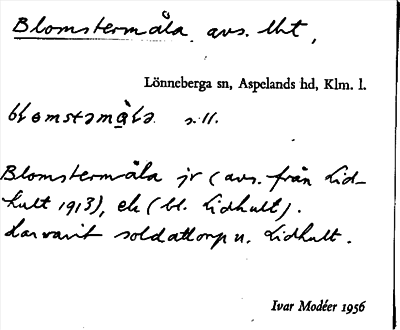 Blomstermåla avs. lht,
Lönneberga sn, Aspelands hd, Klm. l.
blomstəmåla s. 11.
Blomstermåla jr (avs. från Lid-
hult 1913), ek (bl. Lidhult).
Har varit soldattorp u. Lidhult.
Ivar Modéer 1956